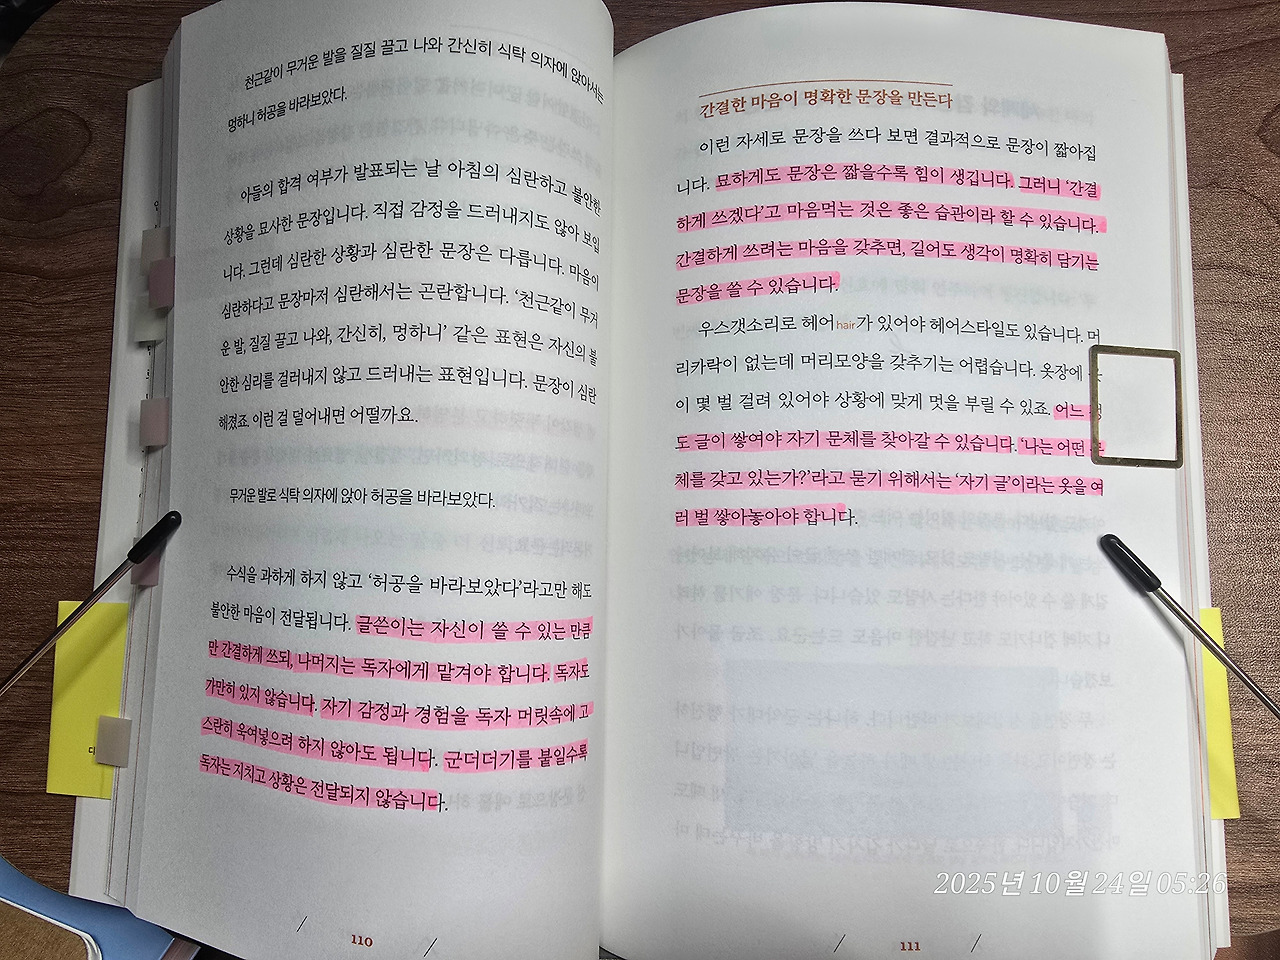 천근같이 무거운 발을 질질 끌고 나와 간신히 식탁 의자에 앉아서는
멍하니 허공을 바라보았다.
아들의 합격 여부가 발표되는 날 아침의 심란하고 불안한
상황을 묘사한 문장입니다. 직접 감정을 드러내지도 않아 보입
니다. 그런데 심란한 상황과 심란한 문장은 다릅니다. 마음이
심란하다고 문장마저 심란해서는 곤란합니다. ‘천근같이 무거
운 발, 질질 끌고 나와, 간신히, 멍하니’ 같은 표현은 자신의 불
안한 심리를 걸러내지 않고 드러내는 표현입니다. 문장이 심란
해졌죠. 이런 걸 덜어내면 어떨까요.
무거운 발로 식탁 의자에 앉아 허공을 바라보았다.
수식을 과하게 하지 않고 ‘허공을 바라보았다’라고만 해도
불안한 마음이 전달됩니다. 글쓴이는 자신이 쓸 수 있는 만큼
만 간결하게 쓰되, 나머지는 독자에게 맡겨야 합니다. 독자도
가만히 있지 않습니다. 자기 감정과 경험을 독자 머릿속에 고
스란히 욱여넣으려 하지 않아도 됩니다. 군더더기를 붙일수록
독자는 지치고 상황은 전달되지 않습니다.
110
간결한 마음이 명확한 문장을 만든다
이런 자세로 문장을 쓰다 보면 결과적으로 문장이 짧아집
니다. 묘하게도 문장은 짧을수록 힘이 생깁니다. 그러니 ‘간결
하게 쓰겠다’고 마음먹는 것은 좋은 습관이라 할 수 있습니다.
간결하게 쓰려는 마음을 갖추면, 길어도 생각이 명확히 담기는
문장을 쓸 수 있습니다.
우스갯소리로 헤어hair가 있어야 헤어스타일도 있습니다. 머
리카락이 없는데 머리모양을 갖추기는 어렵습니다. 옷장에
이 몇 벌 걸려 있어야 상황에 맞게 멋을 부릴 수 있죠. 어느
도 글이 쌓여야 자기 문체를 찾아갈 수 있습니다. ‘나는 어떤 문
체를 갖고 있는가?’라고 묻기 위해서는 ‘자기 글’이라는 옷을 여
러 벌 쌓아놓아야 합니다.
111
2025년 10월 24일 05:26